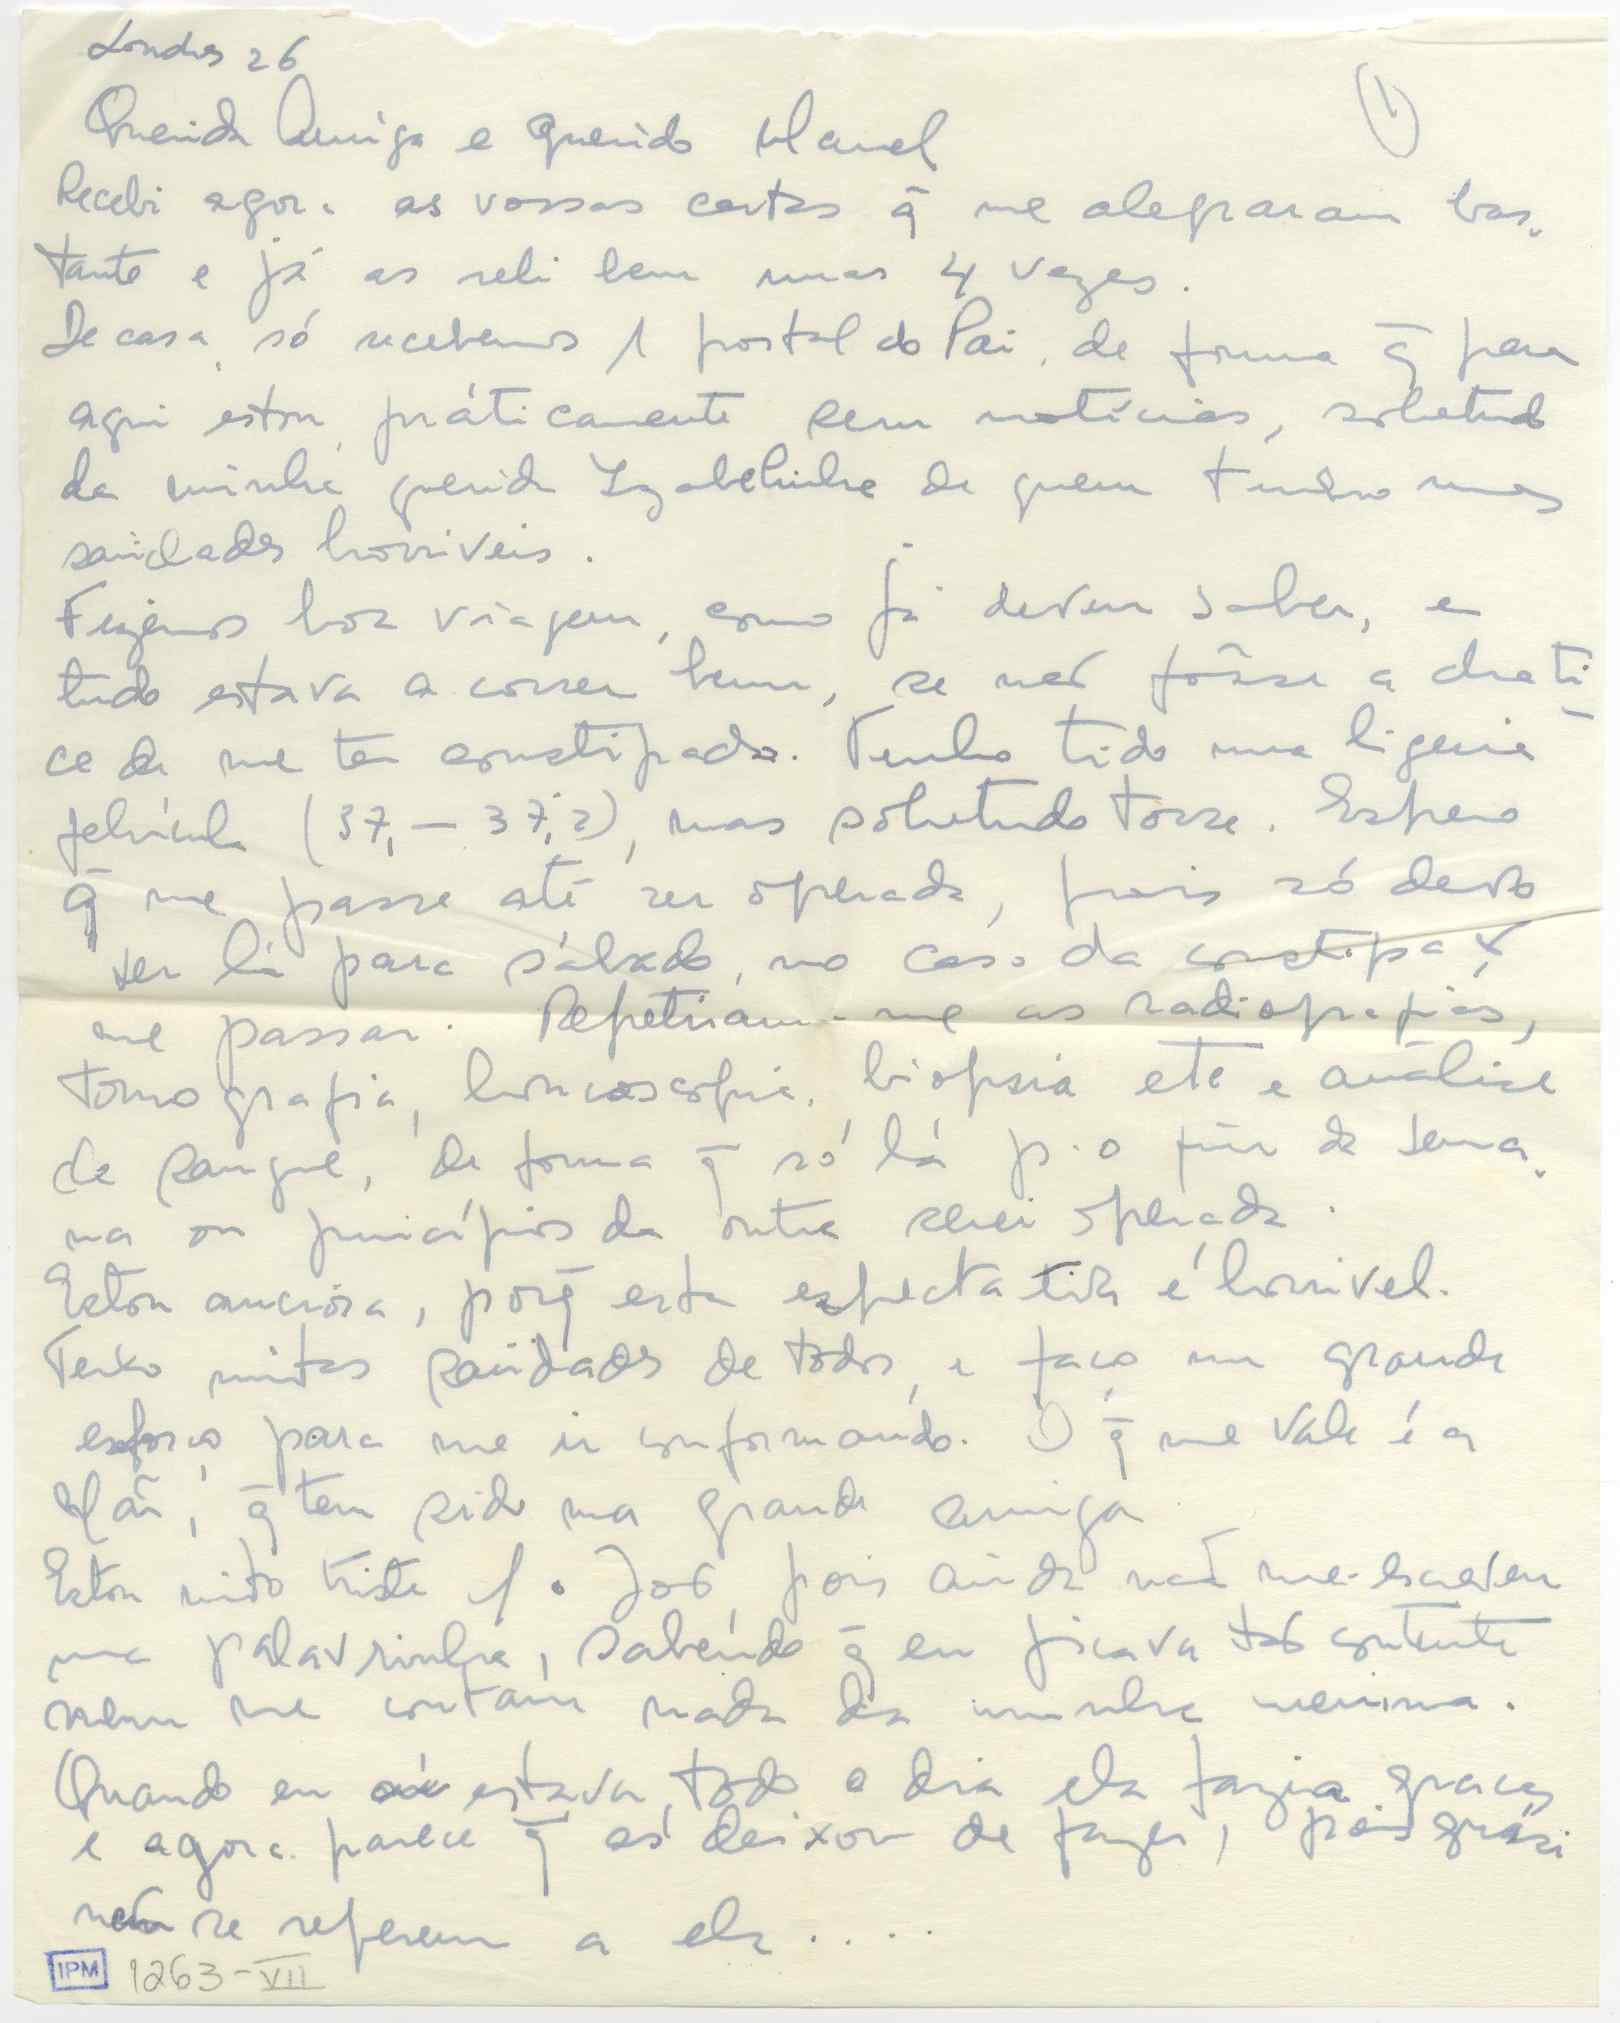 Londres 26
1
Querida Amiga e querido Manel
Recebi agora as vossas cartas q̄ me alegraram bas-
tante e já as reli bem umas 4 vezes.
De casa, só recebemos 1 postal do Pai, de forma q̄ para
aqui estou práticamente sem notícias, sobretudo
da minha querida Izabelinha de quem tenho umas
saudades horriveis.
Fizemos boa viagem, como já devem saber, e
tudo estava a correr bem, se não fôsse a chati-
ce de me ter constipado. Tenho tido uma ligeira
febrícula (37,– 37,2), mas sobretudo tosse. Espero
q̄ me passe até ser operada, pois só devo
ser lá para sábado, no caso da constipação
me passar. Repetiram-me as radiografias,
tomografia, broncoscopia, biopsia etc e análise
de sangue, de forma q̄ só lá p.o fim da sema-
na ou princípios da outra serei operada.
Estou anciosa, porq̄ esta espectativa é horrivel.
Tenho muitas saudades de todos, e faço um grande
esforço para me ir conformando. O q̄ me vale é a
Mãi, q̄ tem sido uma grande amiga.
Estou muito triste c/ o João, pois ainda não me escreveu
uma palavrinha, sabendo q̄ eu ficava tão contente
nem me contam nada da minha menina.
Quando eu aí estava, todo o dia ela fazia graças
e agora parece q̄ as deixou de fazer, pois quási
nem se referem a ela.....
IPM 1263-VII